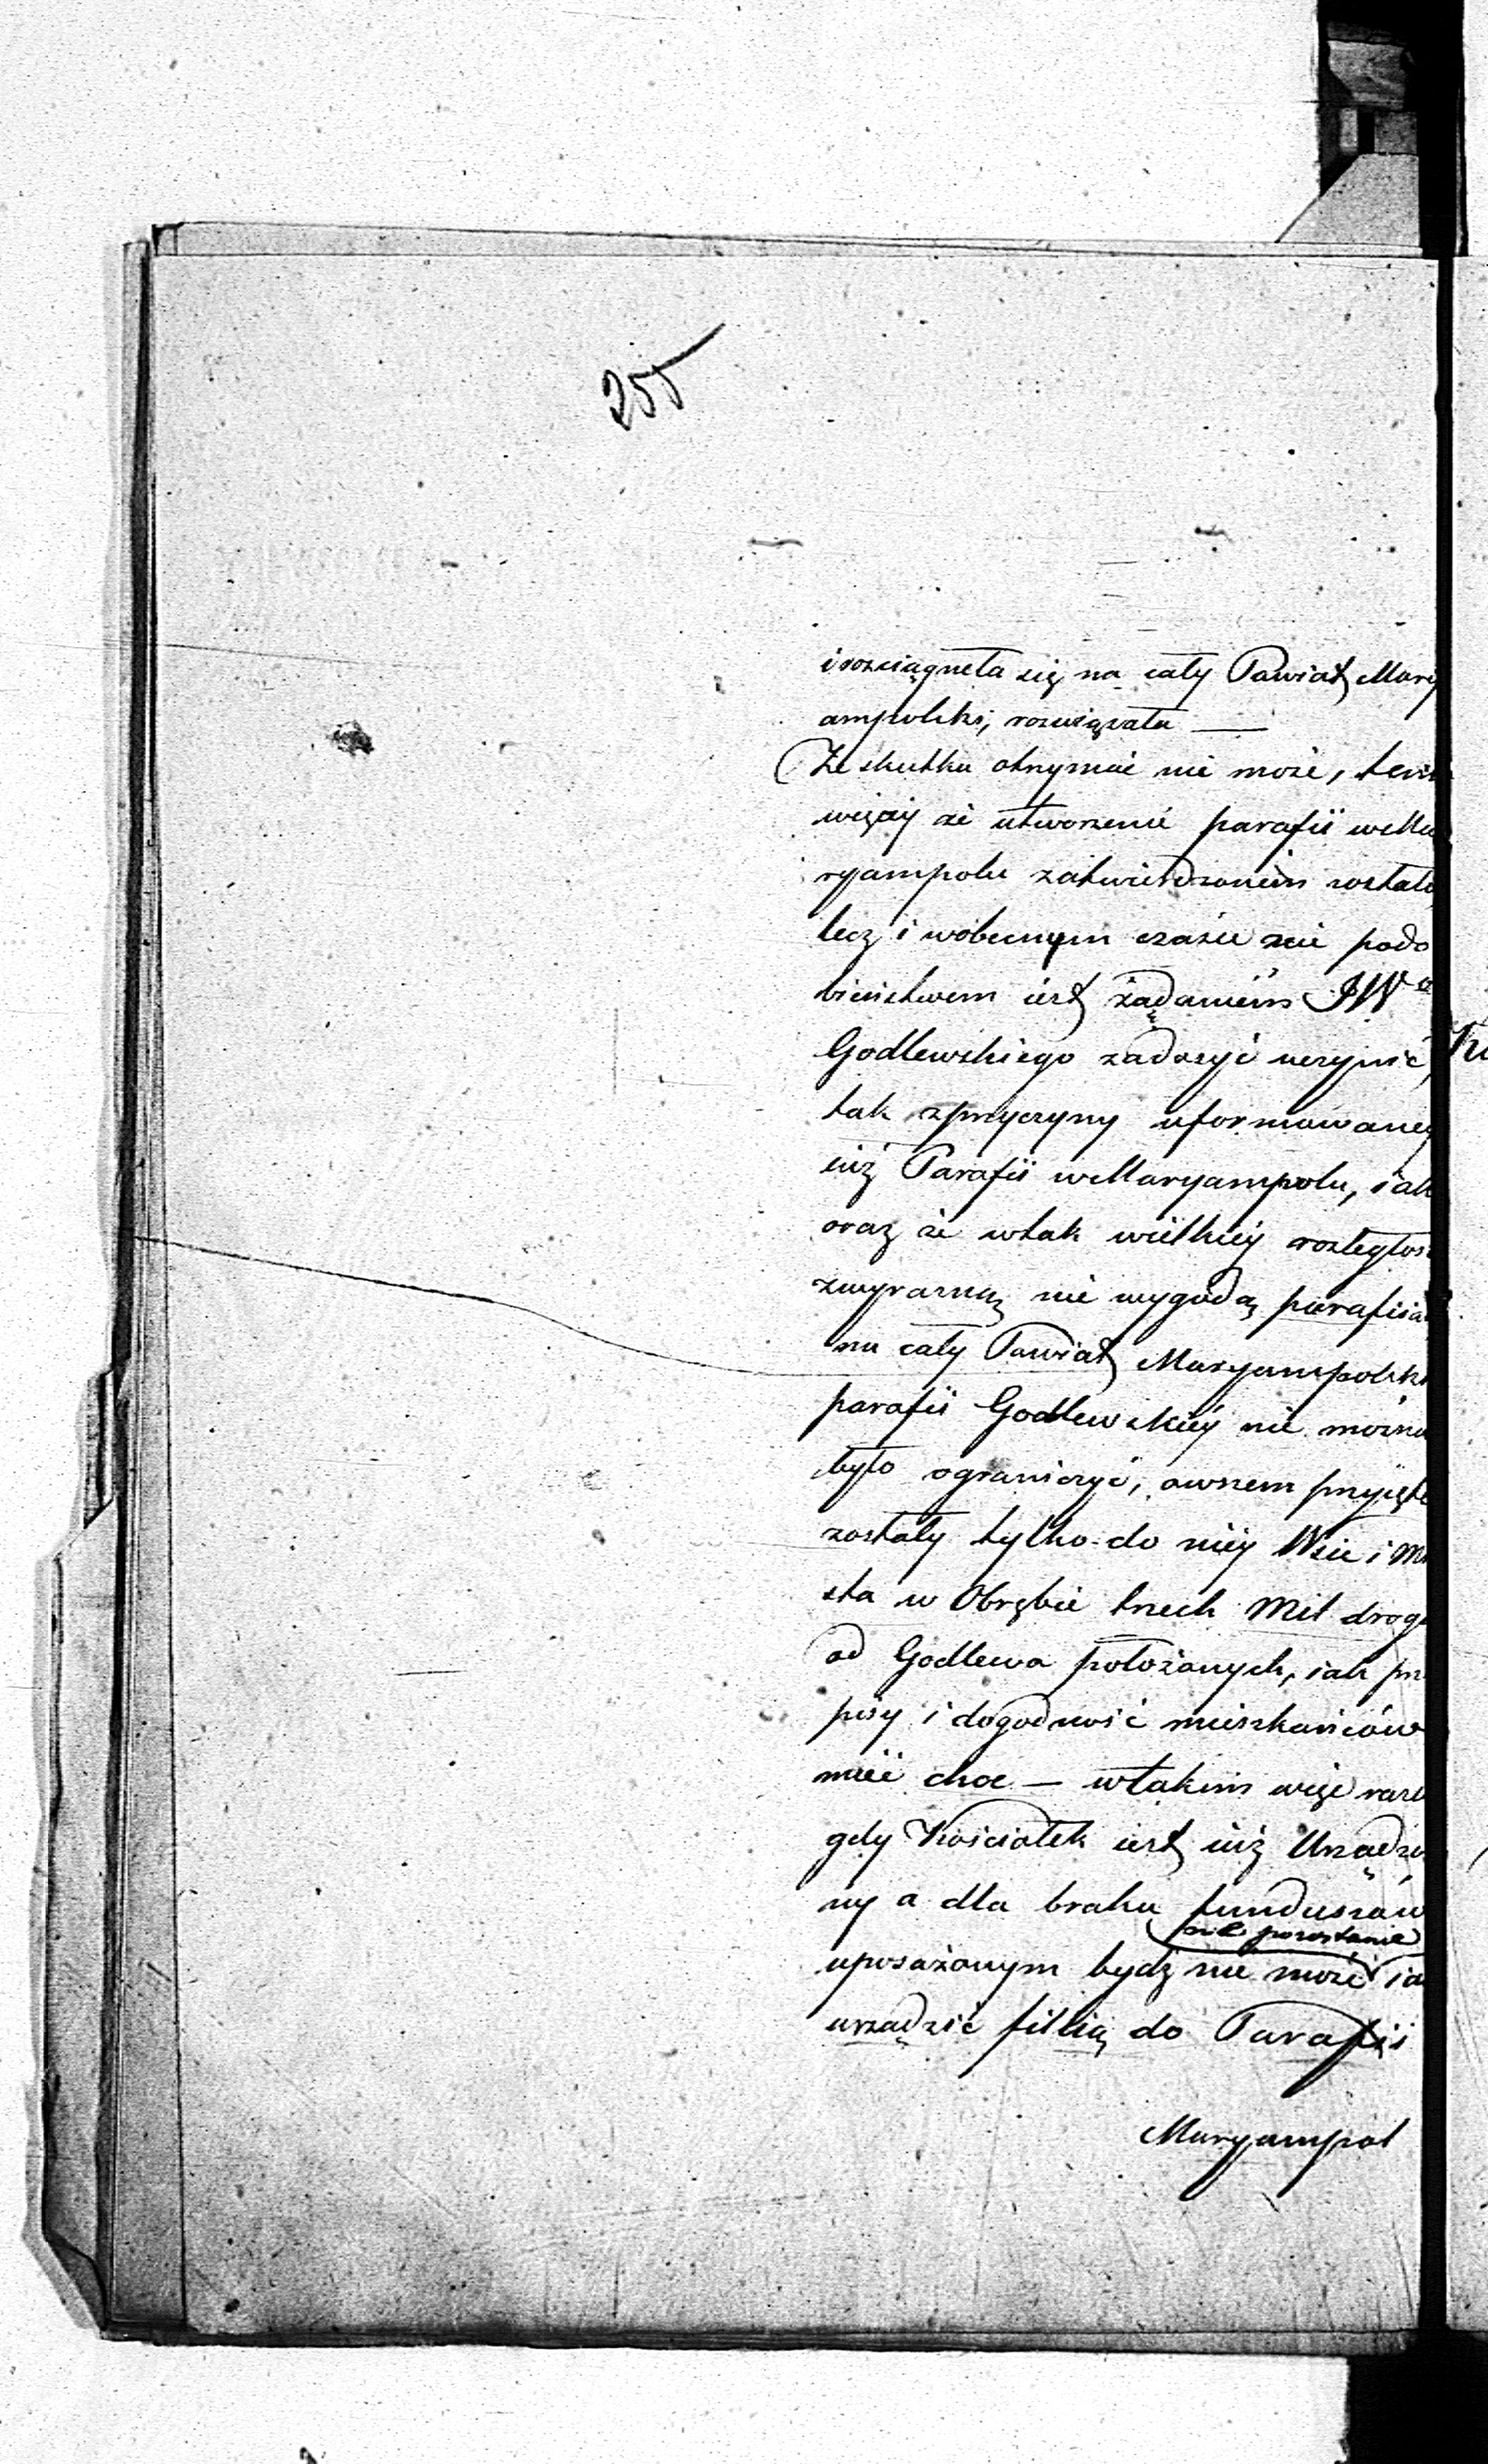 255
i rozciągneła się na cały Powiat Mary
ampolski, rozwiązała —
Że skutku otrzymać nie może, tem
więcey że utworzenie parafii w Ma
ryampolu zatwierdzonem zostało,
lecz i w obecnym czasie nie podo
bieństwem iest żądaniem JW°
Godlewskiego zadosyć uczynić,
tak z przyczyny uformowaney
iuż Parafii w Maryampolu, iak
oraz że w tak wielkiey rozległoś
z wyraźną nie wygodą parafia
na cały Powiat Maryampolski
parafii Godlewskiey nie można
było ograniczyć, owszem przyięte
zostały tylko do niey Wsie i Mi
sta w Obrębie trzech Mil drogi
od Godlewa położonych, iak prz
pisy i dogodność mieszkańców
mieć chce — w takim więc razie
gdy Kościołek iest iuż Urządzo
ny a dla braku funduszów
nie pozostanie
uposażonym bydź nie może ia
urządzić filią do Parafii
Maryampol